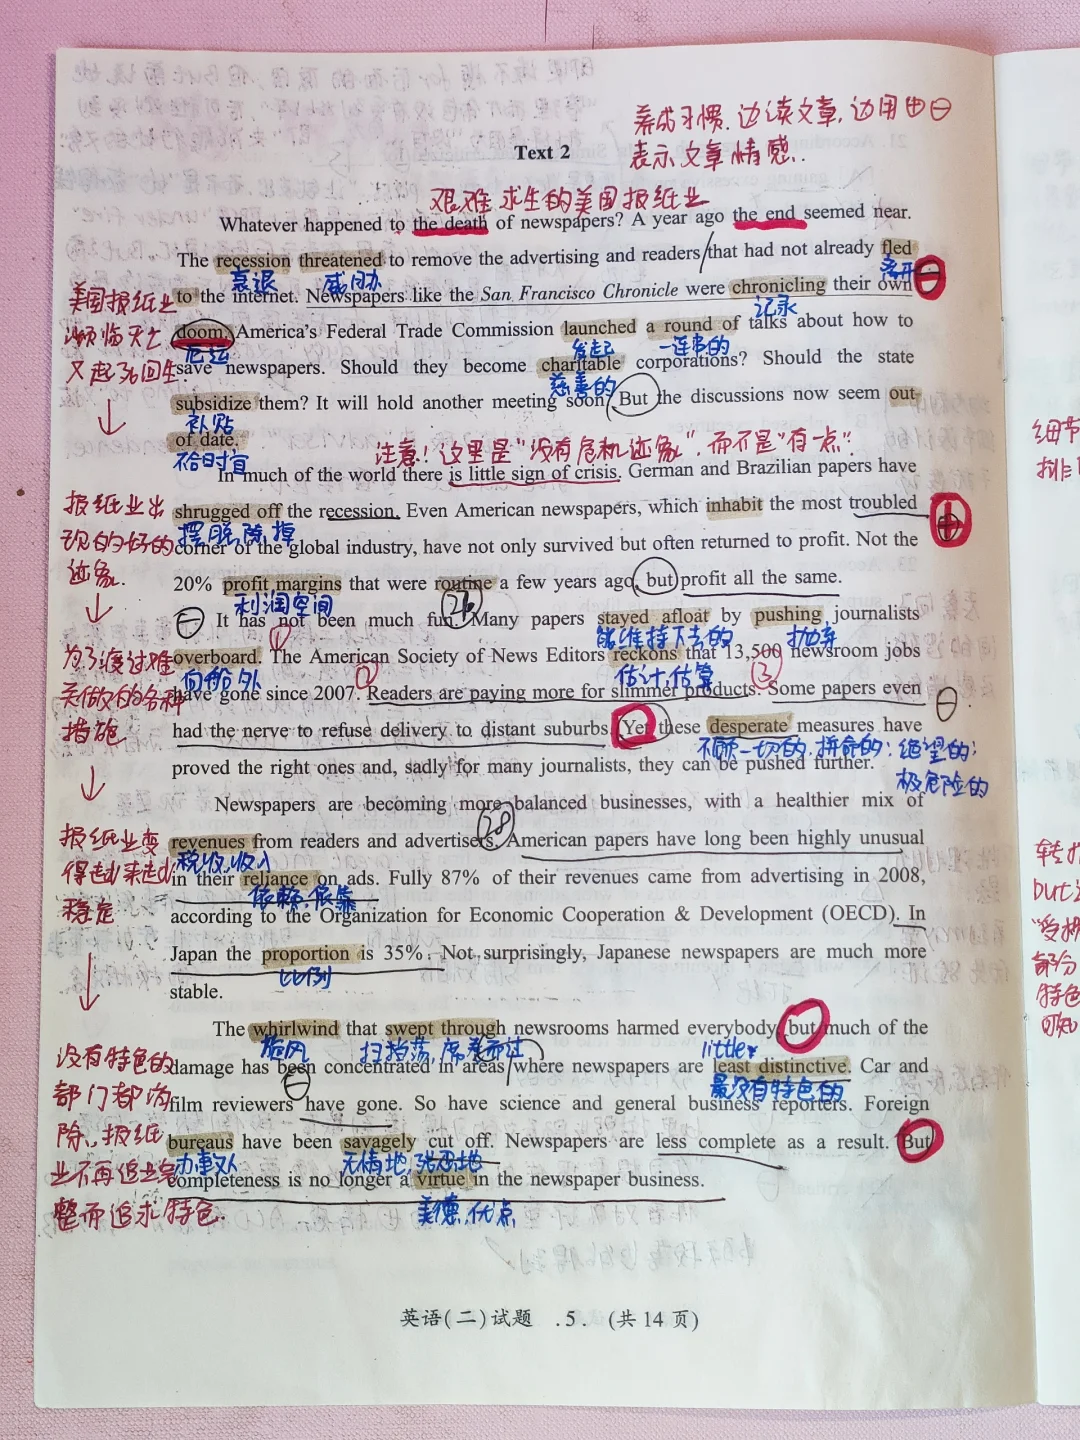 养成习惯.边读文章,边用⊕⊖
表示文章情感.
Text 2
艰难求生的美国报纸业
Whatever happened to the death of newspapers? A year ago the end seemed near.
The recession threatened to remove the advertising and readers that had not already fled
衰退 威胁 离开 ⊖
to the internet. Newspapers like the San Francisco Chronicle were chronicling their own
记录
美国报纸业
濒临灭亡
又起死回生.
doom. America's Federal Trade Commission launched a round of talks about how to
厄运 发起 一连串的
save newspapers. Should they become charitable corporations? Should the state
慈善的
subsidize them? It will hold another meeting soon. But the discussions now seem out
补贴
of date.
不合时宜
注意!这里是"没有危机迹象",而不是"有一点".
In much of the world there is little sign of crisis. German and Brazilian papers have
报纸业出
现的好的
迹象.
shrugged off the recession. Even American newspapers, which inhabit the most troubled
摆脱,除掉 ⊕
corner of the global industry, have not only survived but often returned to profit. Not the
20% profit margins that were routine a few years ago, but profit all the same.
利润空间
⊖ It has not been much fun. Many papers stayed afloat by pushing journalists
26 能维持下去的 抛弃
为了渡过难
关做的各种
措施
overboard. The American Society of News Editors reckons that 13,500 newsroom jobs
向船外 ① 估计,估算
have gone since 2007. Readers are paying more for slimmer products. Some papers even
② ③ ⊖
had the nerve to refuse delivery to distant suburbs. Yet these desperate measures have
不顾一切的,拼命的;绝望的;
极危险的
proved the right ones and, sadly for many journalists, they can be pushed further.
Newspapers are becoming more balanced businesses, with a healthier mix of
28
报纸业变
得越来越
稳定
revenues from readers and advertisers. American papers have long been highly unusual
税收,收入
in their reliance on ads. Fully 87% of their revenues came from advertising in 2008,
依赖,依靠
according to the Organization for Economic Cooperation & Development (OECD). In
Japan the proportion is 35%. Not surprisingly, Japanese newspapers are much more
比例
stable.
The whirlwind that swept through newsrooms harmed everybody, but much of the
旋风 扫荡,席卷而过 little
没有特色的
部门都消
除,报纸
业不再追求完
整而追求特色.
damage has been concentrated in areas where newspapers are least distinctive. Car and
⊖ 最没有特色的
film reviewers have gone. So have science and general business reporters. Foreign
bureaus have been savagely cut off. Newspapers are less complete as a result. But
办事处 无情地,残忍地
completeness is no longer a virtue in the newspaper business.
美德,优点
英语(二)试题 .5. (共14页)
细节
排
转折
but
"受
部分
特色
可知